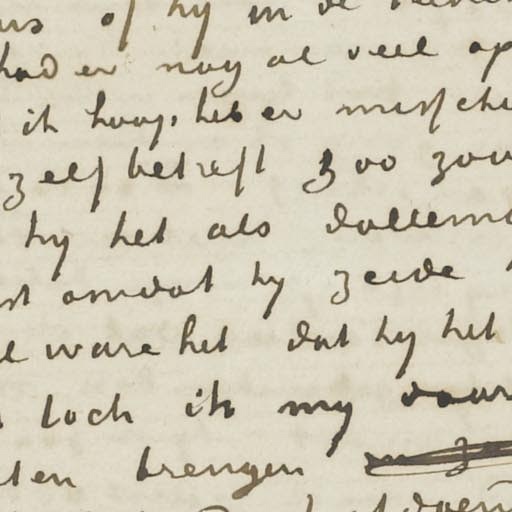 of hy in de
had er nog al veel op
ik hoop, heb er missche
zelf betreft zoo zou
hy het als dollem
omdat hy zeide
ware het dat hy het
toch ik my daar
ten brengen